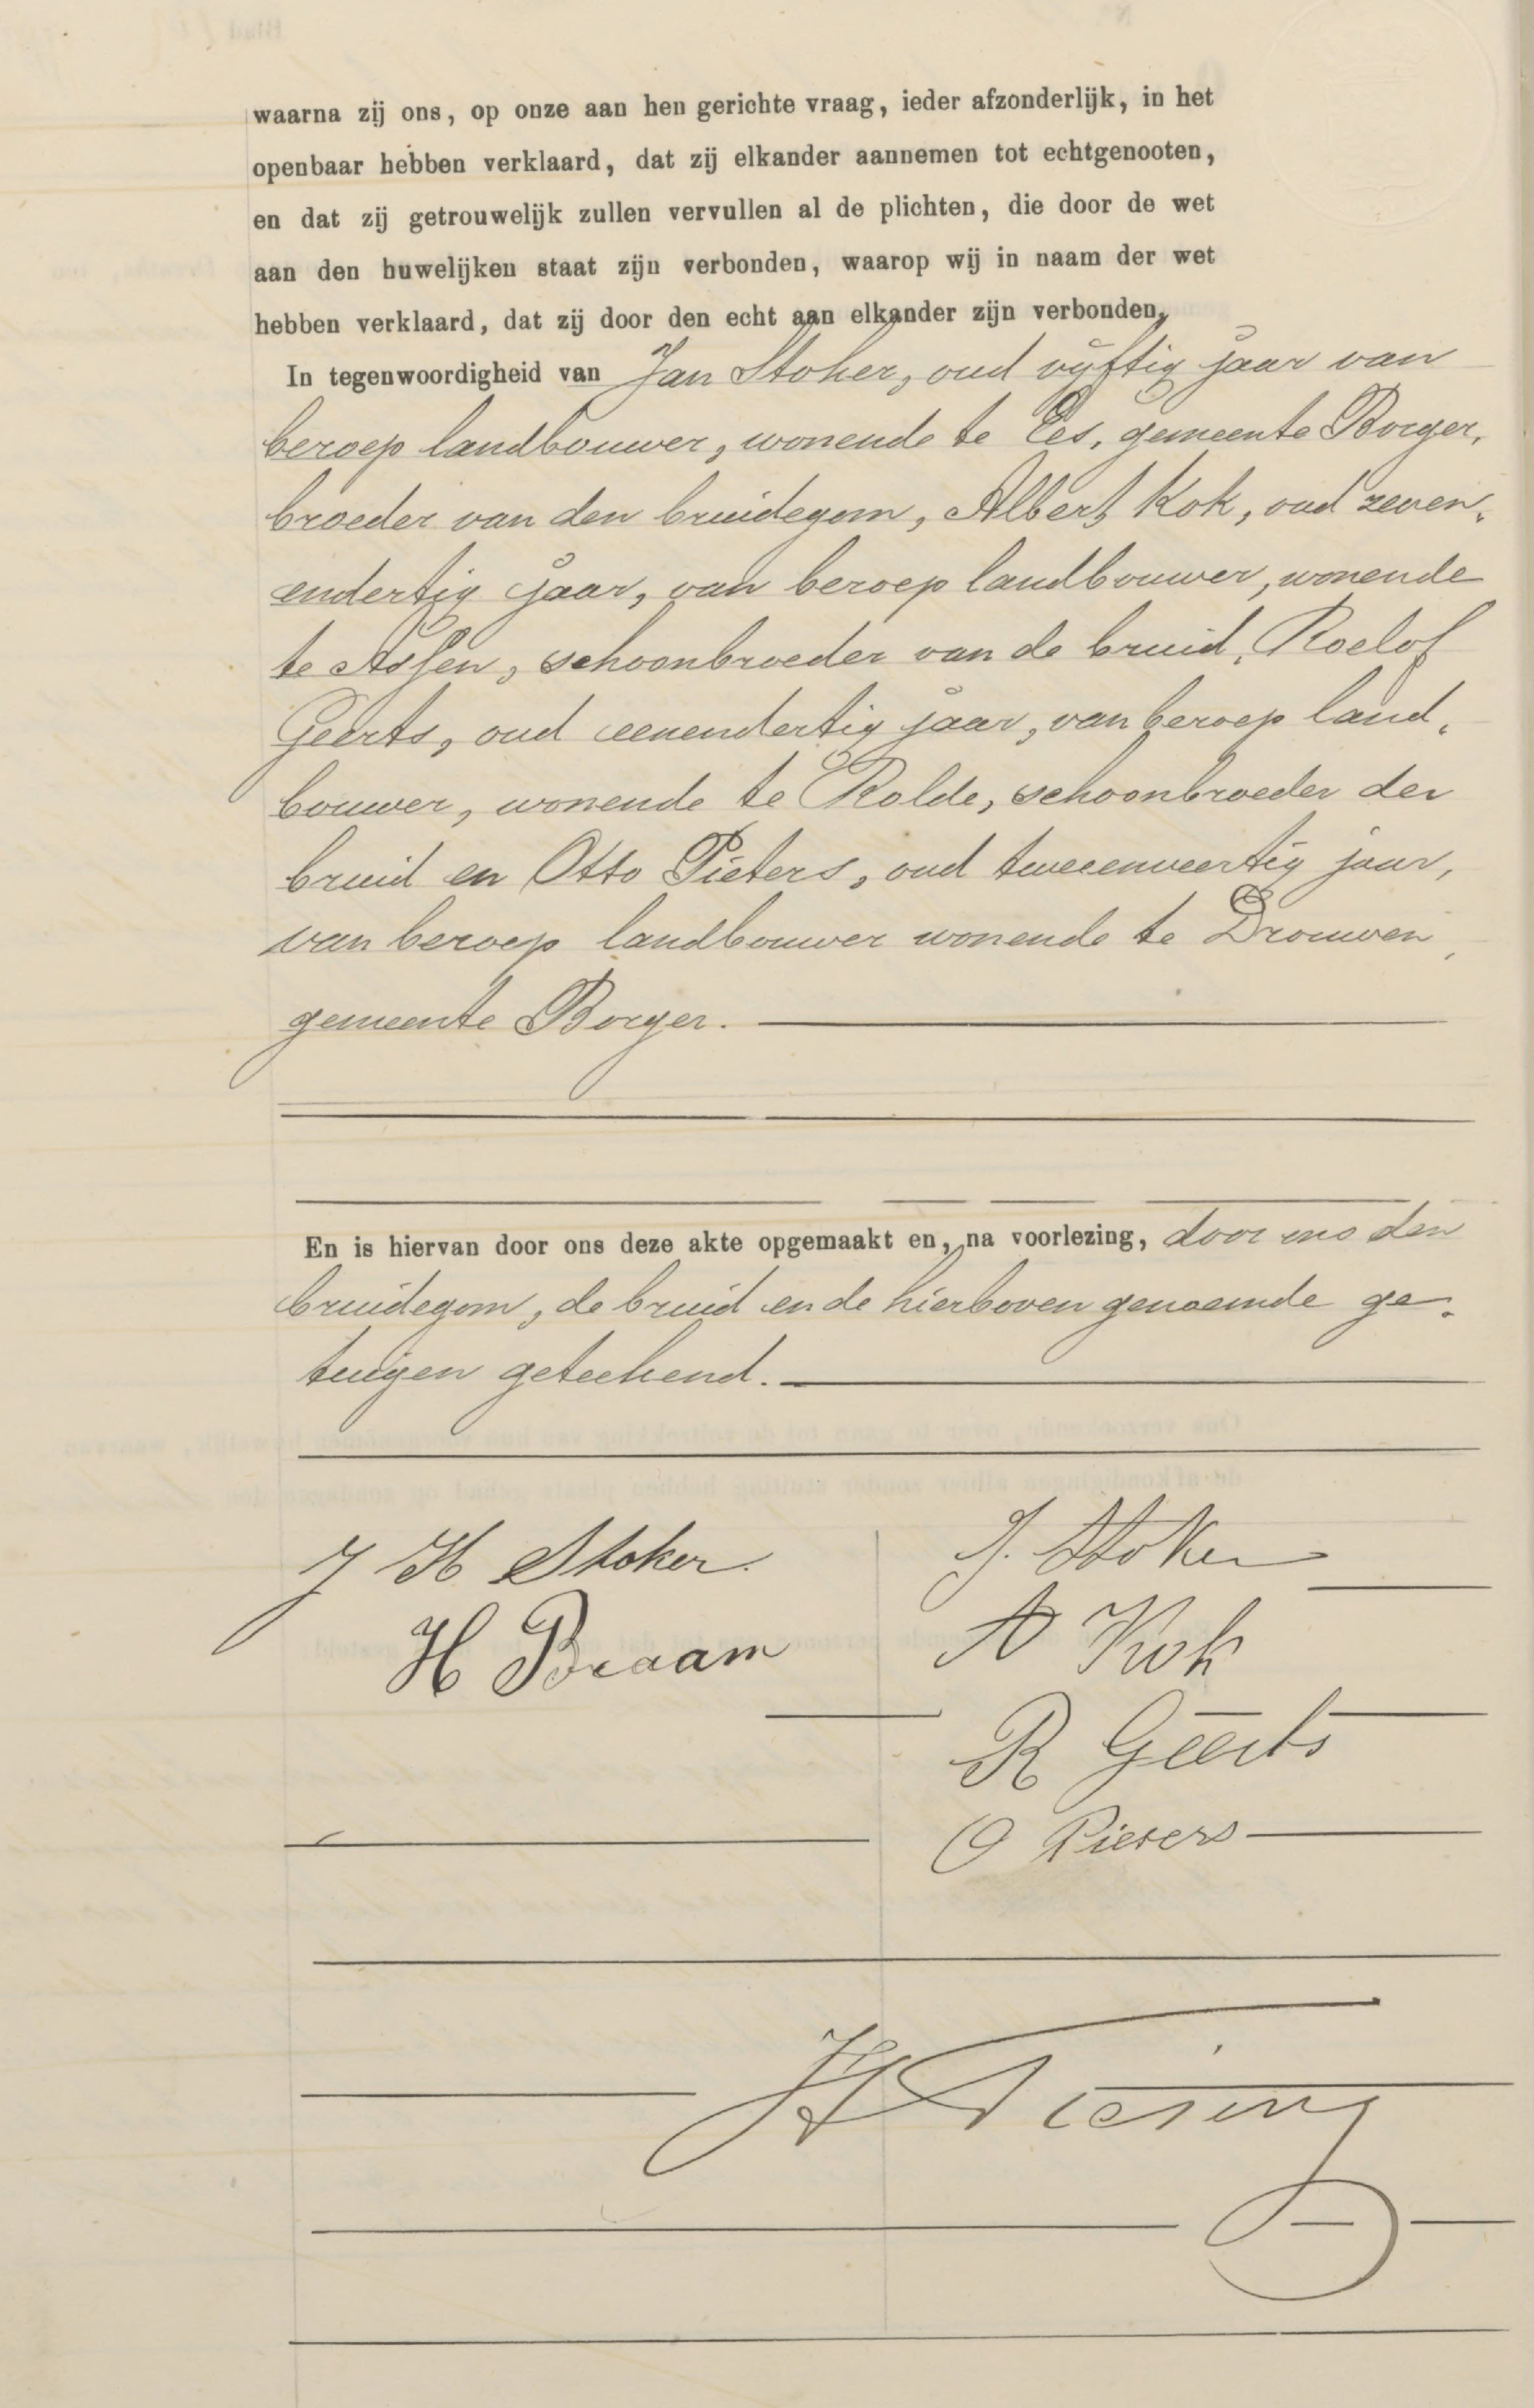 waarna zij ons, op onze aan hen gerichte vraag, ieder afzonderlijk, in het
openbaar hebben verklaard, dat zij elkander aannemen tot echtgenooten,
en dat zij getrouwelijk zullen vervullen al de plichten, die door de wet
aan den huwelijken staat zijn verbonden, waarop wij in naam der wet
hebben verklaard, dat zij door den echt aan elkander zijn verbonden,
In tegenwoordigheid van Jan Stoker, oud vijftig jaar van
beroep landbouwer, wonende te Ees, gemeente Borger,
broeder van den bruidegom, Albert Kok, oud zeven-
endertig jaar, van beroep landbouwer, wonende
te Assen, schoonbroeder van de bruid, Roelof
Geerts, oud eenendertig jaar, van beroep land-
bouwer, wonende te Rolde, schoonbroeder der
bruid en Otto Pieters, oud tweeenveertig jaar,
van beroep landbouwer wonende te Drouwen,
gemeente Borger.
En is hiervan door ons deze akte opgemaakt en, na voorlezing, door ons den
bruidegom, de bruid en de hierboven genoemde ge-
tuigen geteekend.
J H Stoker
J. Stoker
H Braam
A Kok
R Geerts
O Pieters
H Tiesing